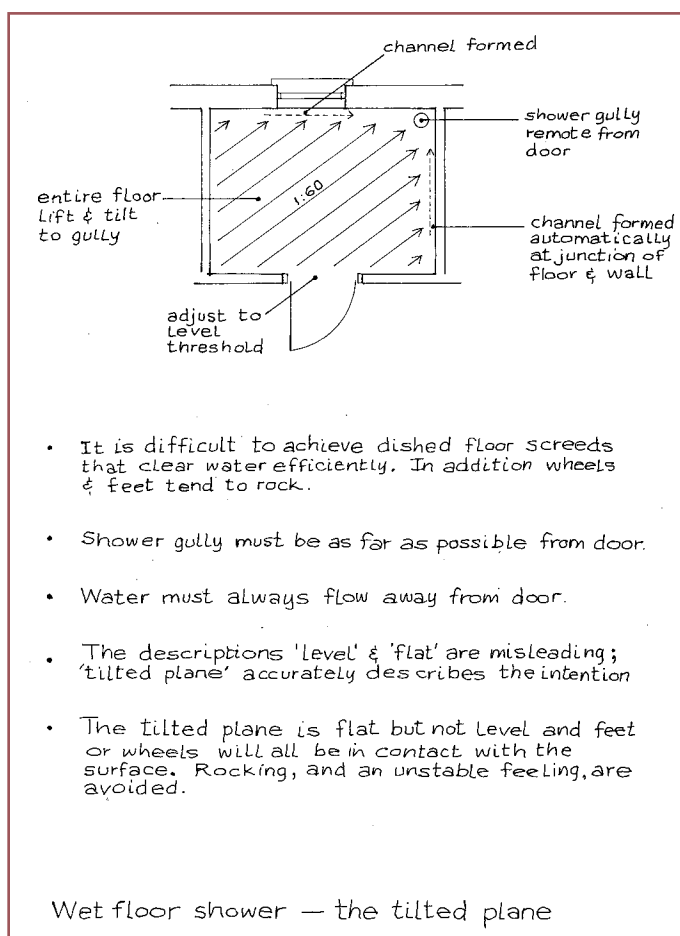 channel formed
shower gully
remote from
door
entire floor
lift & tilt
to gully
1:60
channel formed
automatically
at junction of
floor & wall
adjust to
level
threshold
• It is difficult to achieve dished floor screeds
that clear water efficiently. In addition wheels
& feet tend to rock.
• Shower gully must be as far as possible from door.
• Water must always flow away from door.
• The descriptions 'level' & 'flat' are misleading;
'tilted plane' accurately describes the intention
• The tilted plane is flat but not level and feet
or wheels will all be in contact with the
surface. Rocking, and an unstable feeling, are
avoided.
Wet floor shower — the tilted plane